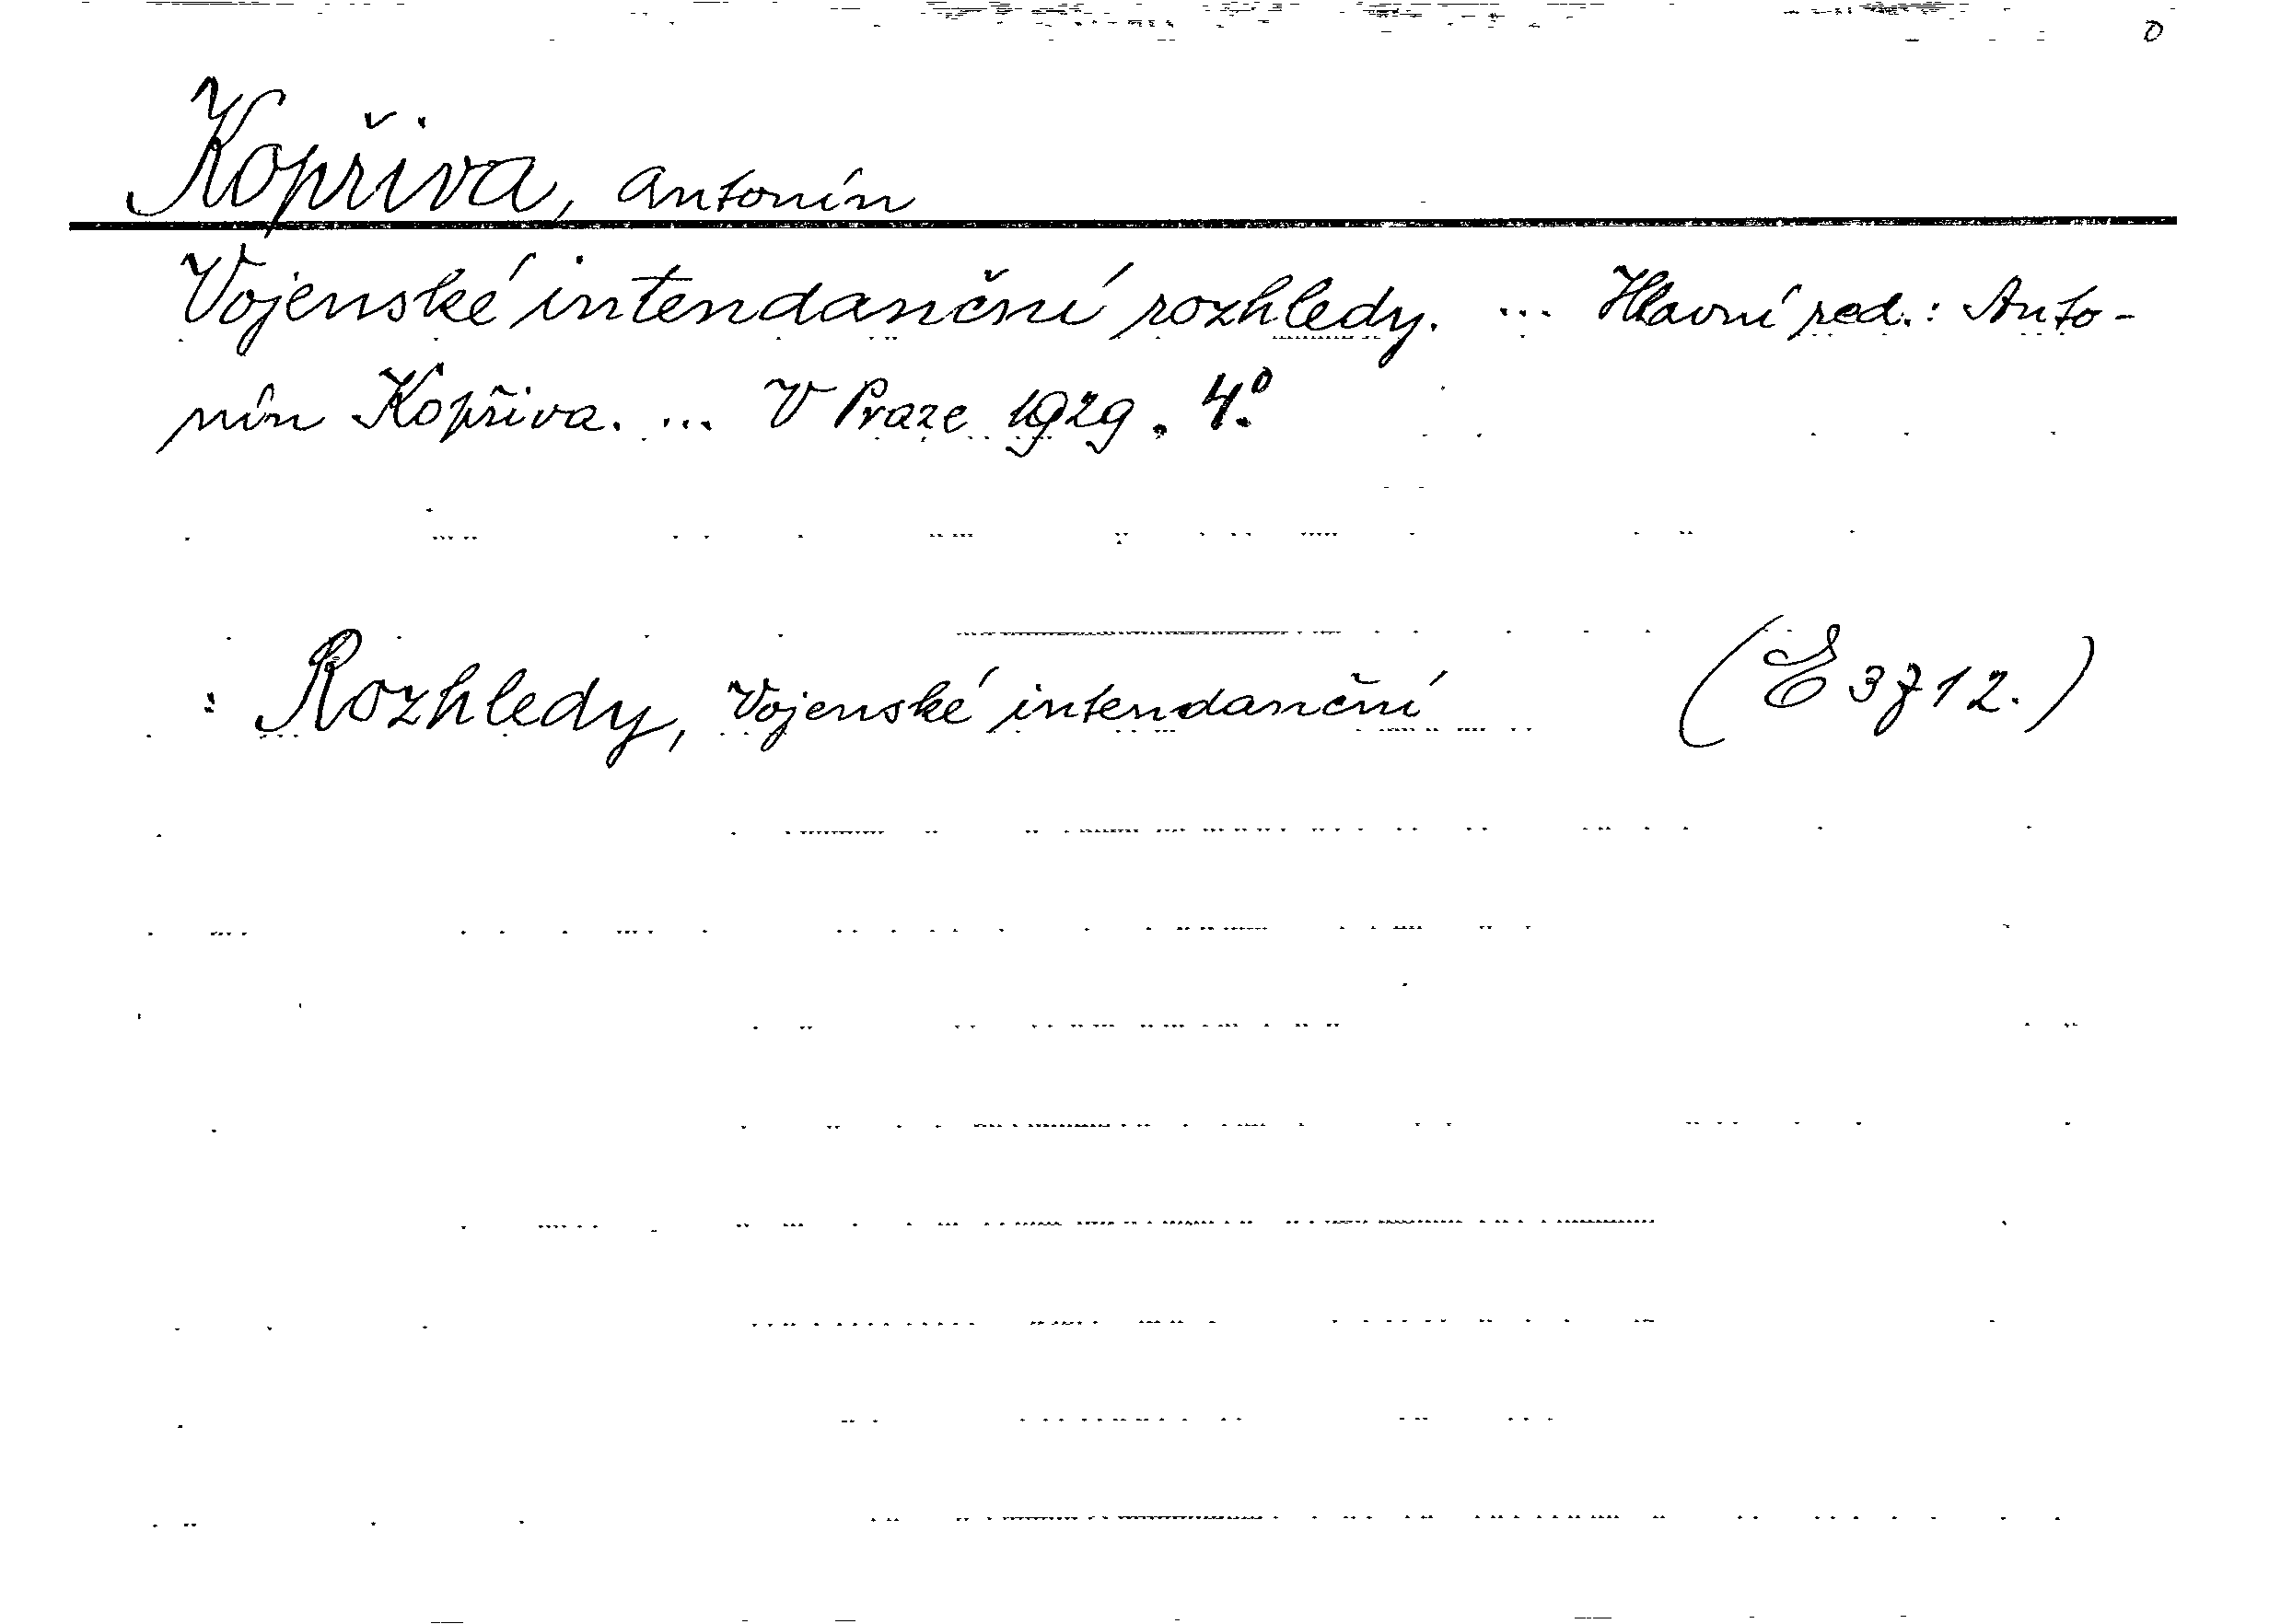 0
Kopřiva, Antonín
Vojenské intendanční rozhledy. ... Hlavní red.: Anto-
nín Kopřiva. ... V Praze 1929. 4.º
: Rozhledy, Vojenské intendanční (E 3712.)